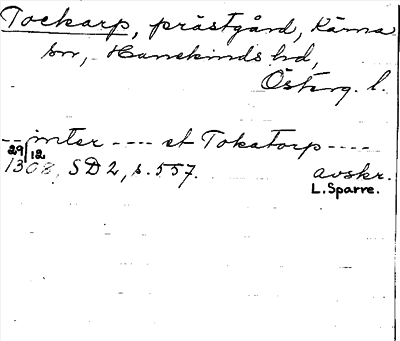 Tockarp, prästgård, Kärna
sn, Hanekinds hd,
Österg. l.
--- inter ---- et Tokatorp ----
29/12
1308, SD 2, s. 557. avskr.
L. Sparre.